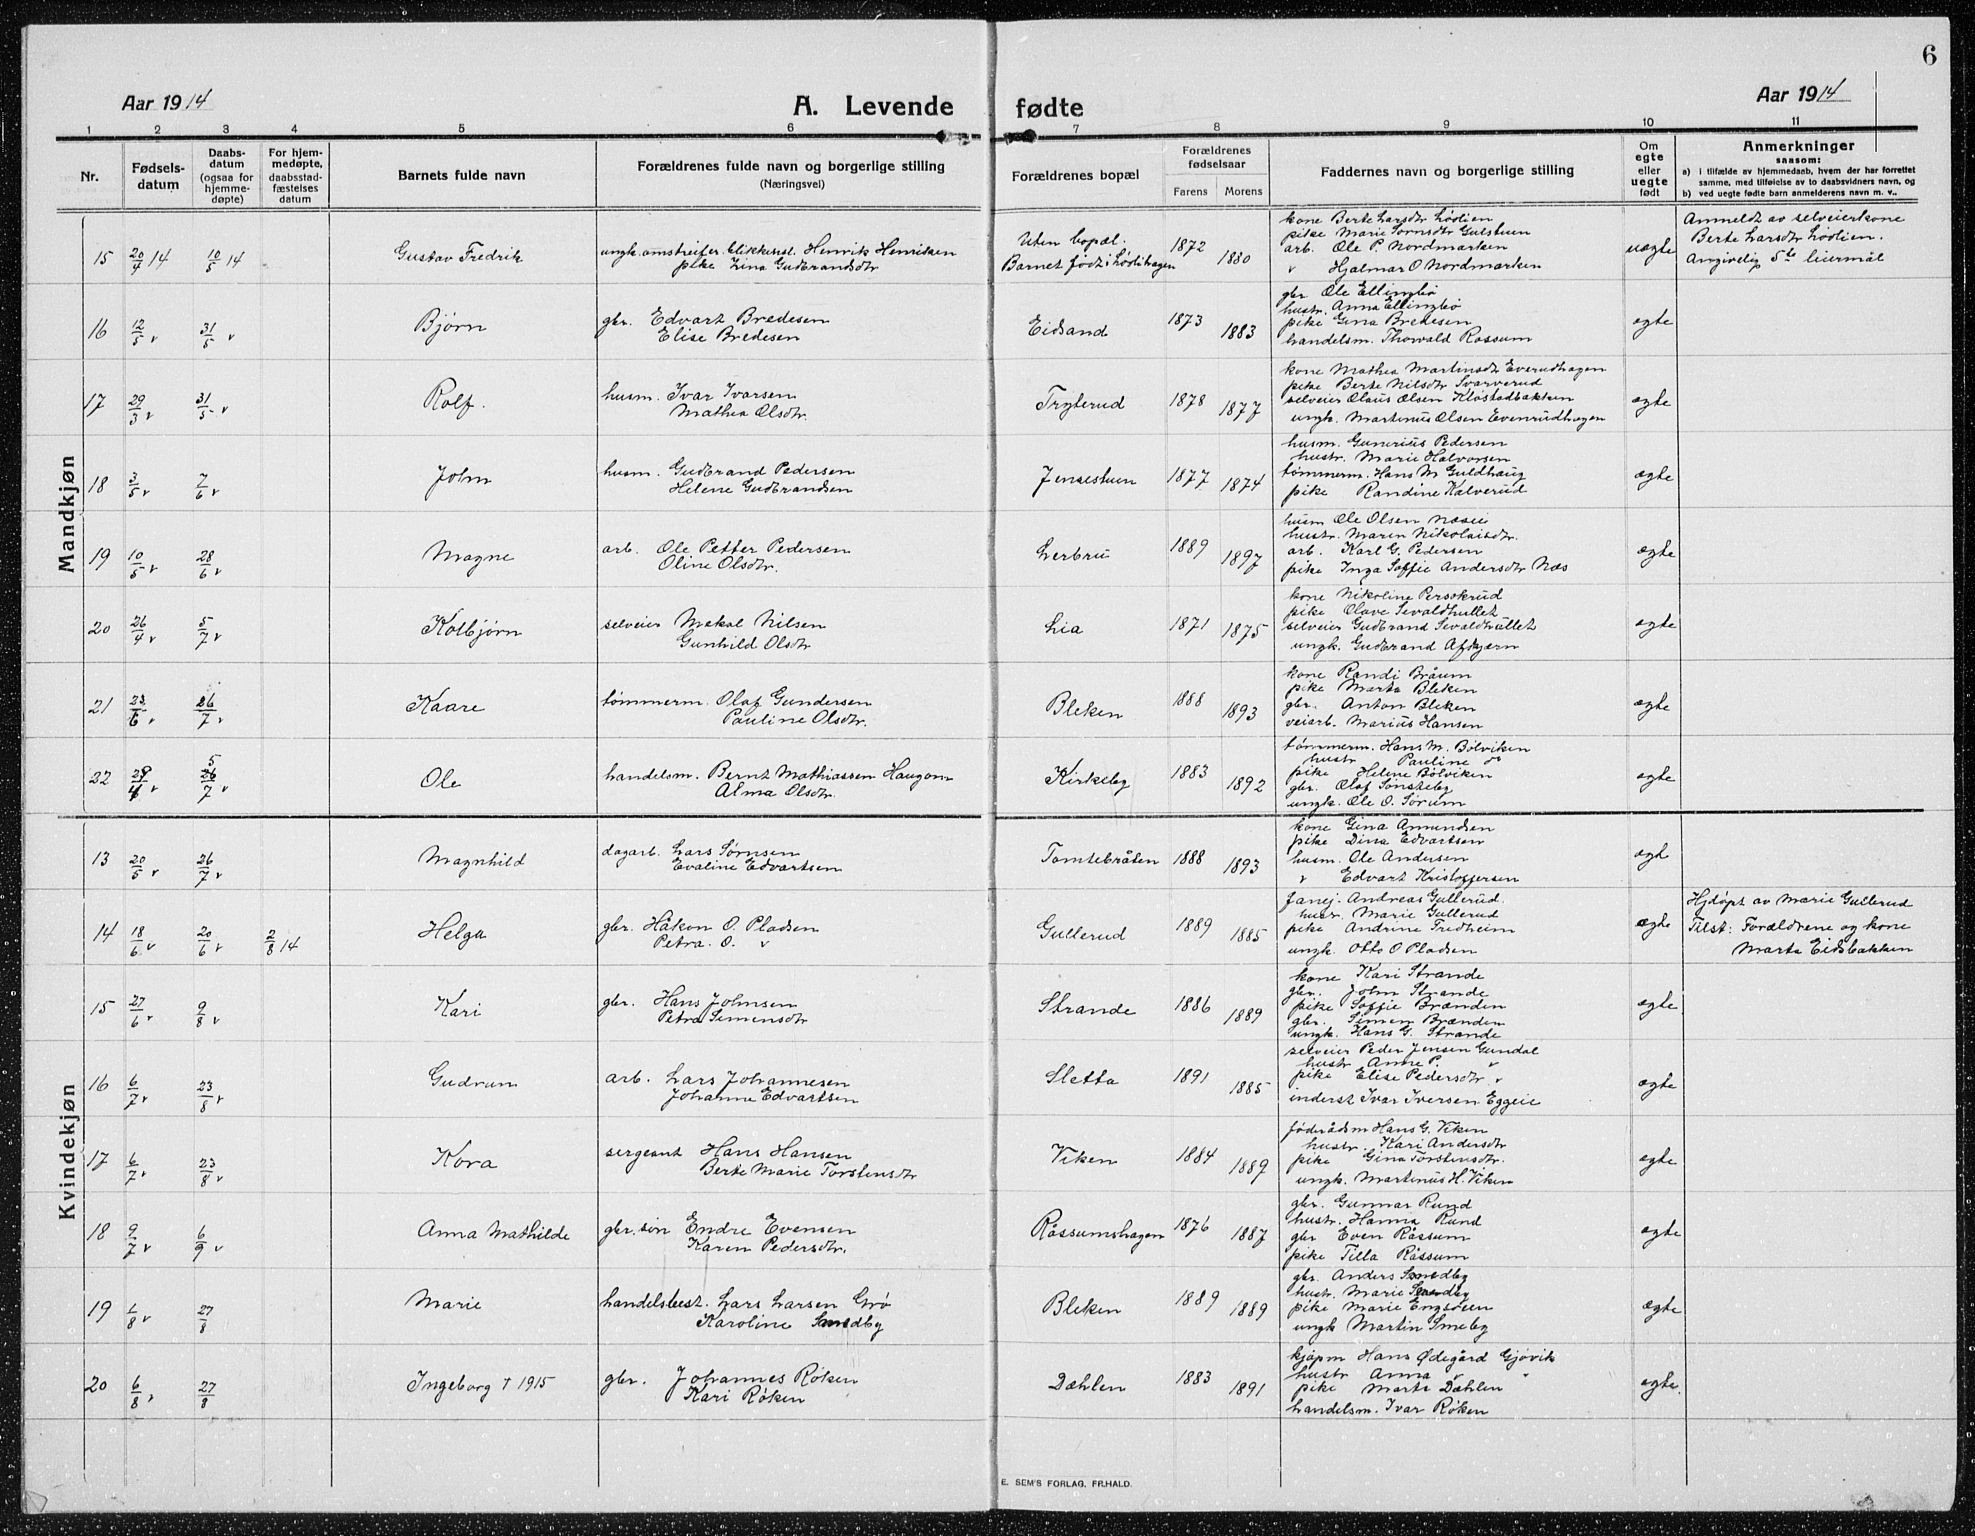 6
Aar 1914
A. Levende fødte
Aar 1914
1 2 3 4 5 6 7 8 9 10 11
Nr.
Fødsels-
datum
Daabs-
datum
(ogsaa for
hjemme-
døpte)
For hjem-
medøpte,
daabsstad-
fæstelses
datum
Barnets fulde navn
Forældrenes fulde navn og borgerlige stilling
(Næringsvei)
Forældrenes bopæl
Forældrenes
fødselsaar
Farens Morens
Faddernes navn og borgerlige stilling
Om
egte
eller
uegte
født
Anmerkninger
saasom:
a) i tilfælde av hjemmedaab, hvem der har forrettet
samme, med tilføielse av to daabsvidners navn, og
b) ved uegte fødte barn anmelderens navn m. v..
Mandkjøn
15 20/4 14 10/5 14 Gustav Fredrik
ungk. omstreifer blikkensl. Henrik Henriksen
pike Lina Gudbrandsdtr
Uten bopæl.
Barnet født i Lødlihagen
1872 1880
kone Berte Larsdtr Lødlien
pike Marie Sørnsdtr Gulstuen
arb. Ole P. Nordmarken
" Hjalmar O Nordmarken
uegte
Anmeldt av selveierkone
Berte Larsdtr Lødlien.
Angivelig 5te leiermål
16 12/5 v 31/5 v Bjørn
gbr. Edvart Bredesen
Elise Bredesen
Eidsand 1873 1883
gbr Ole Ellingbø
hustr. Anna Ellingbø
pike Gina Bredesen
handelsm. Thorvald Rossum
egte
17 29/3 v 31/5 v Rolf.
husm. Ivar Ivarsen
Mathea Olsdtr.
Tryterud 1878 1877
kone Mathea Martinsdtr Everudhagen
pike Berte Nilsdtr Svarverud
selveier Olaus Olsen Kløstadbakken
ungk. Martinus Olsen Evenrudhagen
egte
18 3/5 v 7/6 v John
husm. Gudbrand Pedersen
Helene Gudbrandsen
Jensestuen 1877 1874
husm. Gunerius Pedersen
hustr. Marie Halvorsen
tømmerm. Hans M Guldhaug
pike Randine Kalverud
egte
19 10/5 v 28/6 v Magne
arb. Ole Petter Pedersen
Oline Olsdtr.
Lerbru 1889 1897
husm Ole Olsen Næseie
hustr. Maren Nikolaisdtr.
arb. Karl G. Pedersen
pike Inga Soffie Andersdtr Næs
egte
20 26/4 v 5/7 v Kolbjørn
selveier Mekal Nilsen
Gunhild Olsdtr
Lia 1871 1875
kone Nikoline Persokrud
pike Olave Sevaldhullet
selveier Gudbrand Sevaldhullet
ungk. Gudbrand Afkjærn
egte
21 23/6 v 26/7 v Kaare
tømmerm. Olaf Gundersen
Pauline Olsdtr.
Bleken 1888 1893
kone Randi Bråum
pike Marta Bleken
gbr. Anton Bleken
veiarb. Marius Hansen
egte
22 5 26/7 v Ole
handelsm. Bernt Mathiassen Haugom
Alma Olsdtr.
Kirkeby 1883 1892
tømmerm. Hans M. Bølviken
hustr Pauline do
pike Helene Bølviken
gbr. Olaf Sønsteby
ungk. Ole O. Sørum
egte
Kvindekjøn
13 20/5 v 26/7 v Magnhild
dagarb. Lars Sørnsen
Evaline Edvartsen
Tomtebråten 1888 1893
kone Gina Amundsen
pike Dina Edvartsen
husm. Ole Andersen
v Edvart Kristoffersen
egte
14 18/6 v 20/6 v 2/8 14 Helga
gbr. Håkon O. Pladsen
Petra. O. v
Gullerud 1889 1885
Andreas Gullerud.
hustr. Marie Gullerud
pike Andrine Fredheim
ungk. Otto O Pladsen
egte
Hjdøpt av Marie Gullerud
Tilst: Forældrene og kone
Marte Eidsbakken
15 27/6 v 9/8 v Kari
gbr. Hans Johnsen
Petra Simensdtr
Strande 1886 1889
kone Kari Strande
gbr. John Strande
pike Soffie Brænden
gbr. Simen Brænden
ungk. Hans G. Strande
egte
16 6/7 v 23/8 v Gudrun
arb. Lars Johannesen
Johanne Edvartsen
Sletta 1891 1885
selveier Peder Jensen Gundal
hustr Anne P. v
pike Elise Pedersdtr v
inderst Ivar Iversen Eggeie
egte
17 6/7 v 23/8 v Kora
sergeant Hans Hansen
Berte Marie Torstensdtr
Viken 1884 1889
føderådsm Hans G. Viken
hustr. Kari Andersdtr
pike Gina Torstensdtr.
ungk. Martinus H. Viken
egte
18 9/7 v 6/9 v Anna Mathilde
gbr. søn Endre Evensen
Karen Pedersdtr.
Råssumshagen 1876 1887
gbr. Gunnar Rund
hustr. Hanna Rund
gbr Even Råssum
pike Tilla Råssum
egte
19 1/8 v 27/8 Marie
handelsbest. Lars Larsen Grø
Karoline Smedby
Bleken 1889 1889
gbr. Anders Smedby
hustr. Marie Smedby
pike Marie
ungk Martin Smeby
egte
20 6/8 v 27/8 Ingeborg † 1915
gbr. Johannes Røken
Kari Røken
Dæhlen 1883 1891
kjøpm Hans Ødegård Gjøvik
hustr Anna v "
pike Marta Dæhlen
handelsm. Ivar Røken
egte.
E. SEM'S FORLAG, FR.HALD.